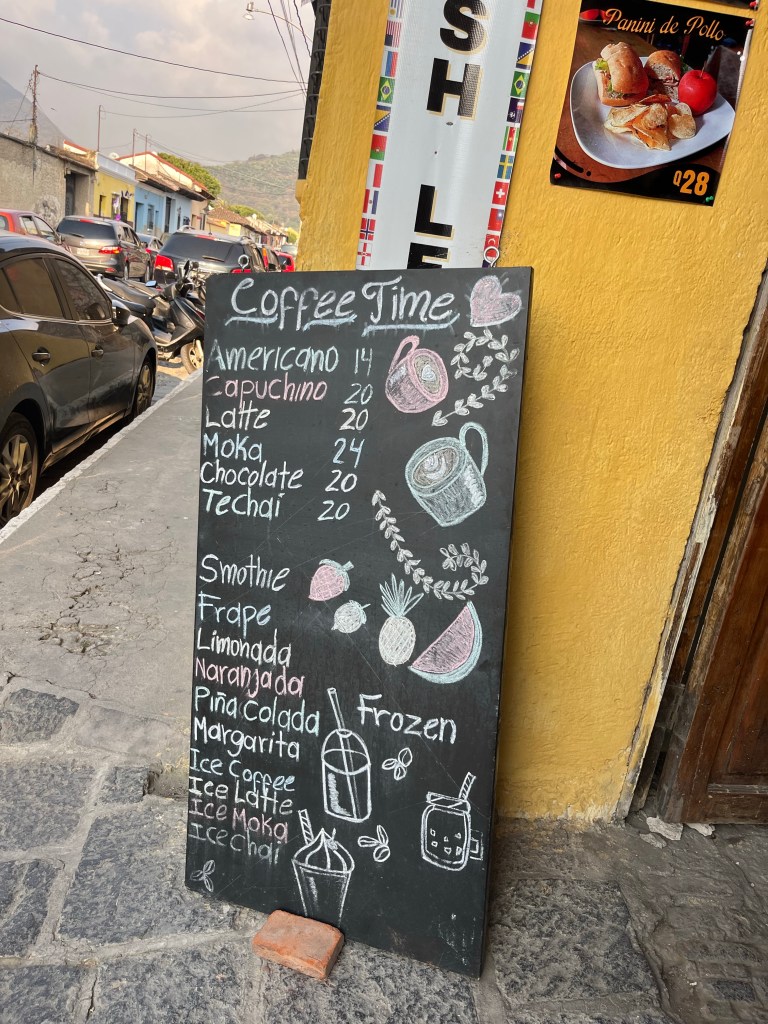 SH LE
Panini de Pollo
Q28
Coffee Time
Americano 14
Capuchino 20
Latte 20
Moka 24
Chocolate 20
Techai 20
Smothie
Frape
Limonada
Naranjada
Piña Colada
Margarita
Frozen
Ice Coffee
Ice Latte
Ice Moka
Ice Chai